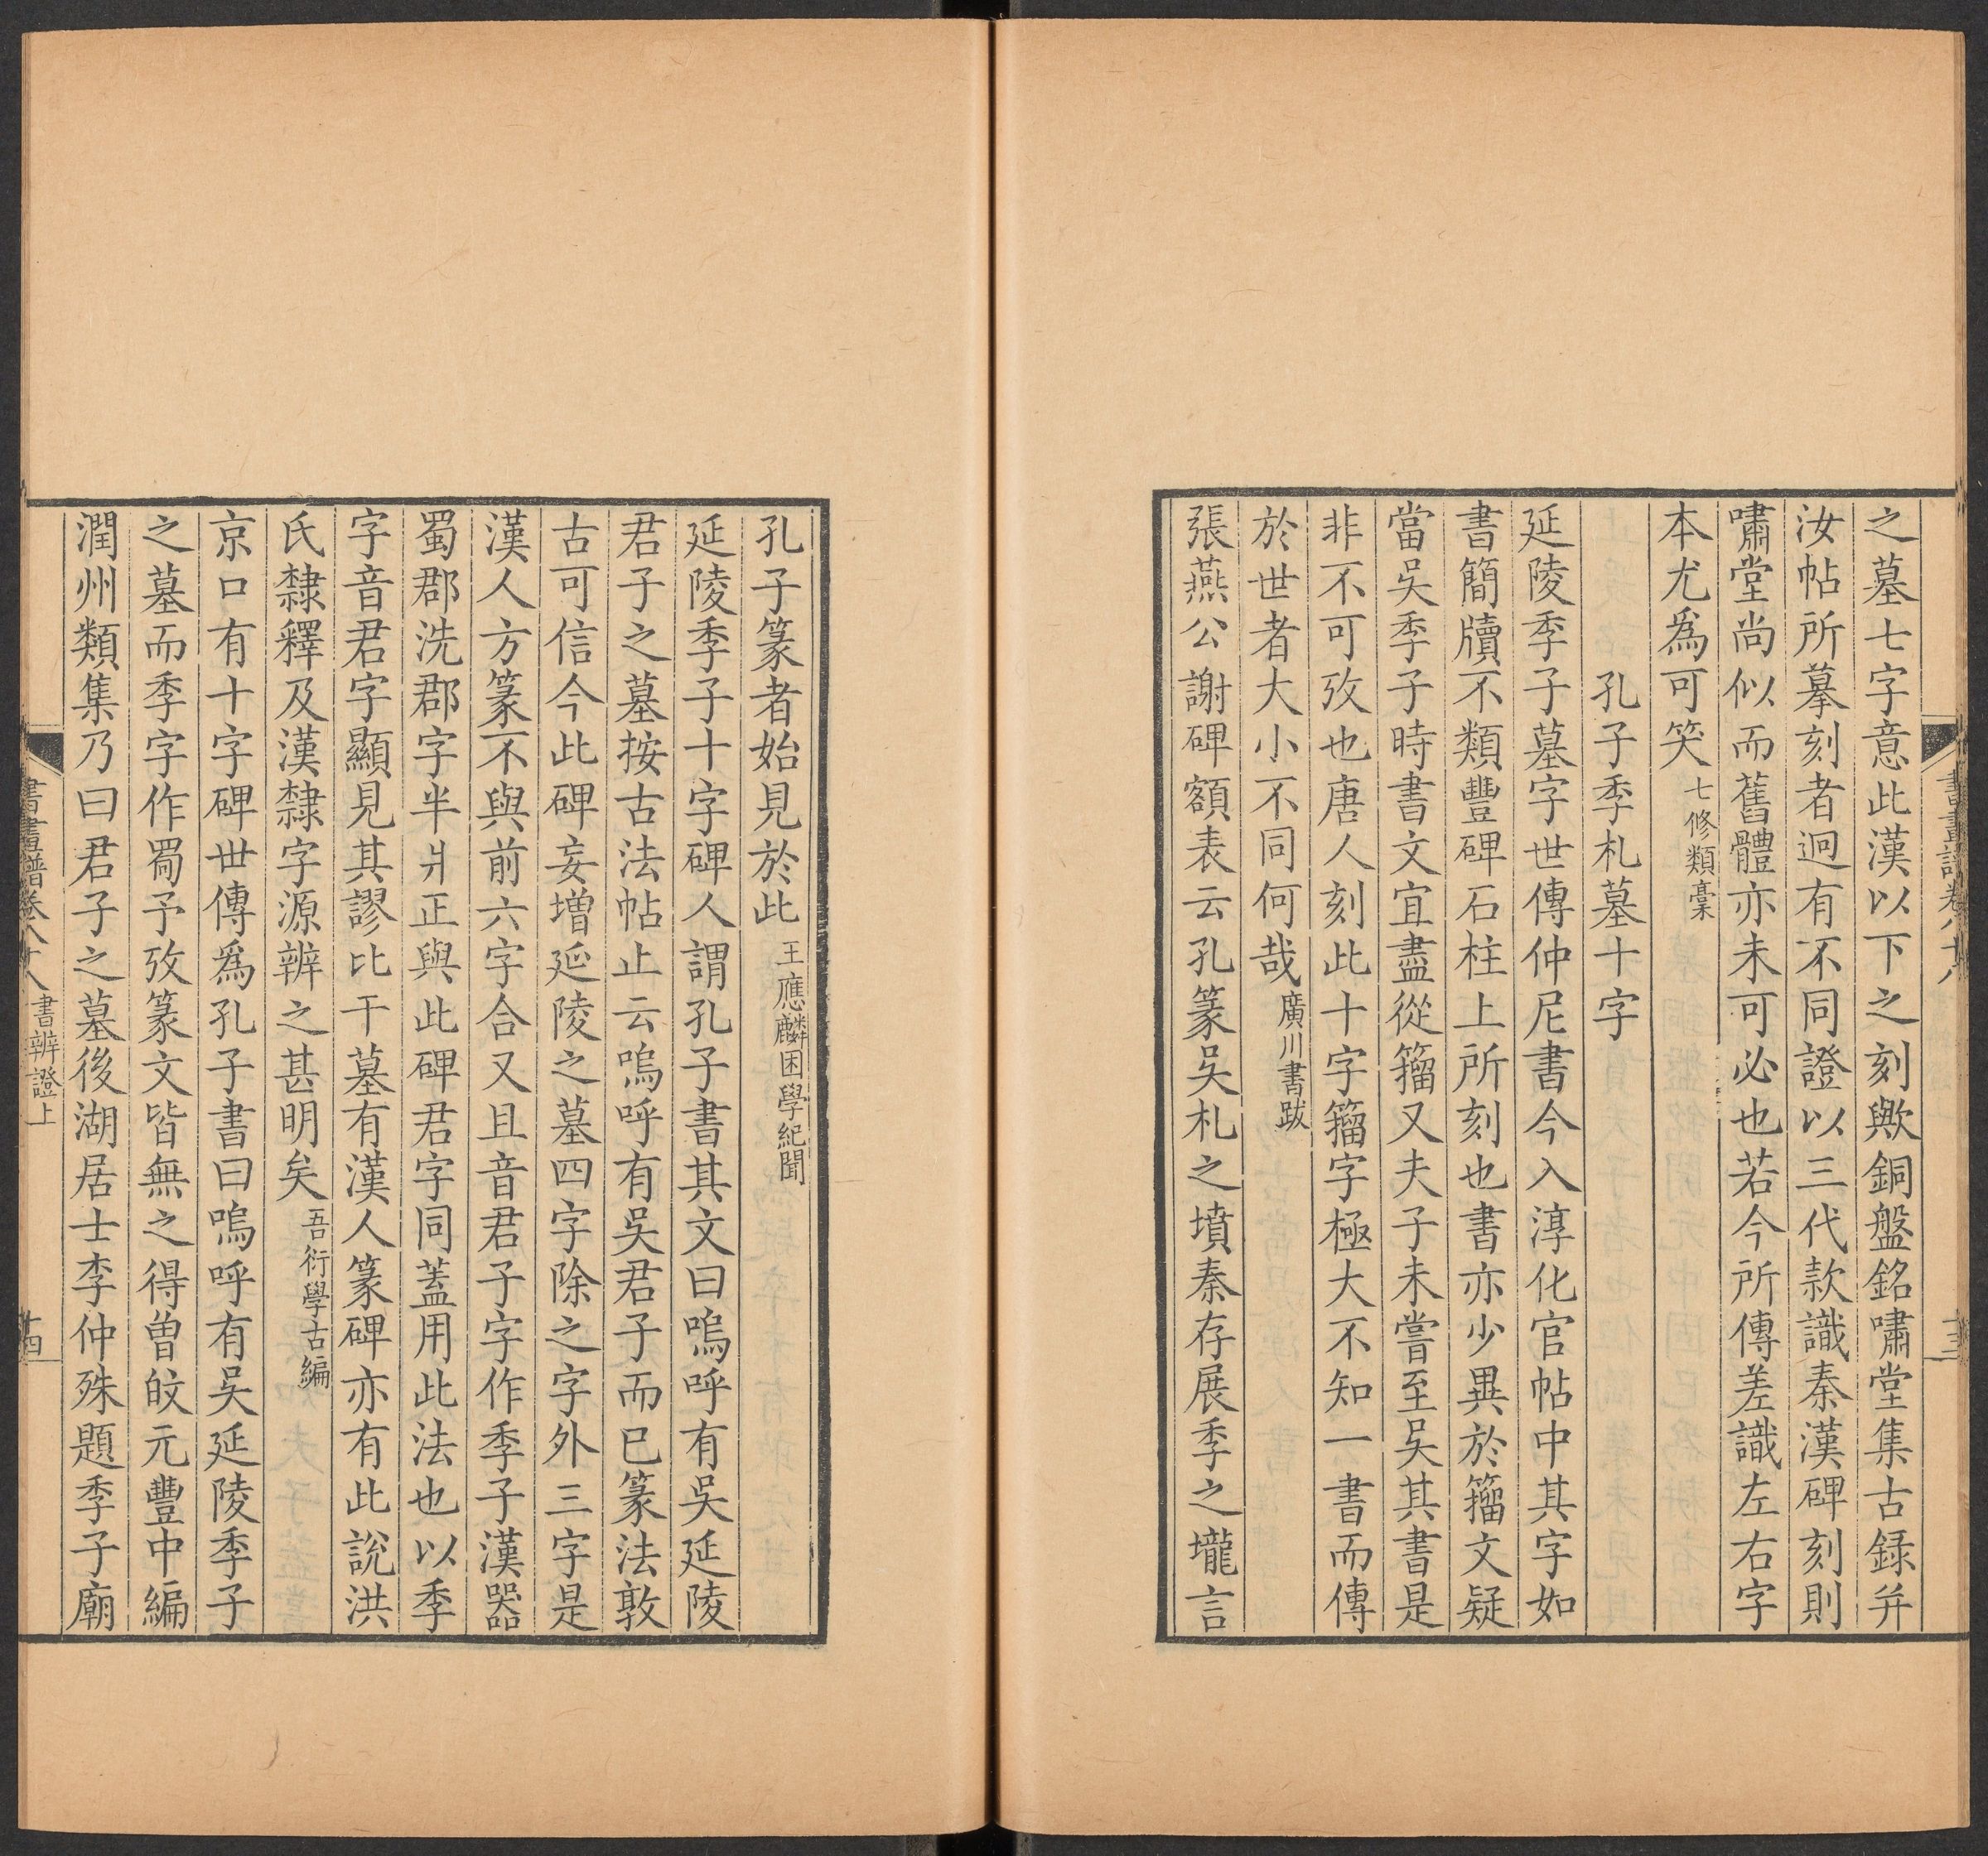 之墓七字意此漢以下之刻歟銅盤銘嘯堂集古録并
汝帖所摹刻者迥有不同證以三代款識秦漢碑刻則
嘯堂尚似而舊體亦未可必也若今所傳差識左右字
本尤爲可笑七修類稾
孔子季札墓十字
延陵季子墓字世傳仲尼書今入淳化官帖中其字如
書簡牘不類豐碑石柱上所刻也書亦少異於籀文疑
當吳季子時書文宜盡從籀又夫子未嘗至吳其書是
非不可攷也唐人刻此十字籀字極大不知一書而傳
於世者大小不同何哉廣川書跋
張燕公謝碑額表云孔篆吳札之墳秦存展季之壠言
書畫譜卷八十八
十三
孔子篆者始見於此王應麟困學紀聞
延陵季子十字碑人謂孔子書其文曰嗚呼有吳延陵
君子之墓按古法帖止云嗚呼有吳君子而已篆法敦
古可信今此碑妄増延陵之墓四字除之字外三字是
漢人方篆不與前六字合又且音君子字作季子漢器
蜀郡洗郡字半爿正與此碑君字同蓋用此法也以季
字音君字顯見其謬比干墓有漢人篆碑亦有此説洪
氏隸釋及漢隸字源辨之甚明矣吾衍學古編
京口有十字碑世傳爲孔子書曰嗚呼有吳延陵季子
之墓而季字作罱予攷篆文皆無之得曾旼元豐中編
潤州類集乃曰君子之墓後湖居士李仲殊題季子廟
書畫譜卷八十八
書辨證上
十四